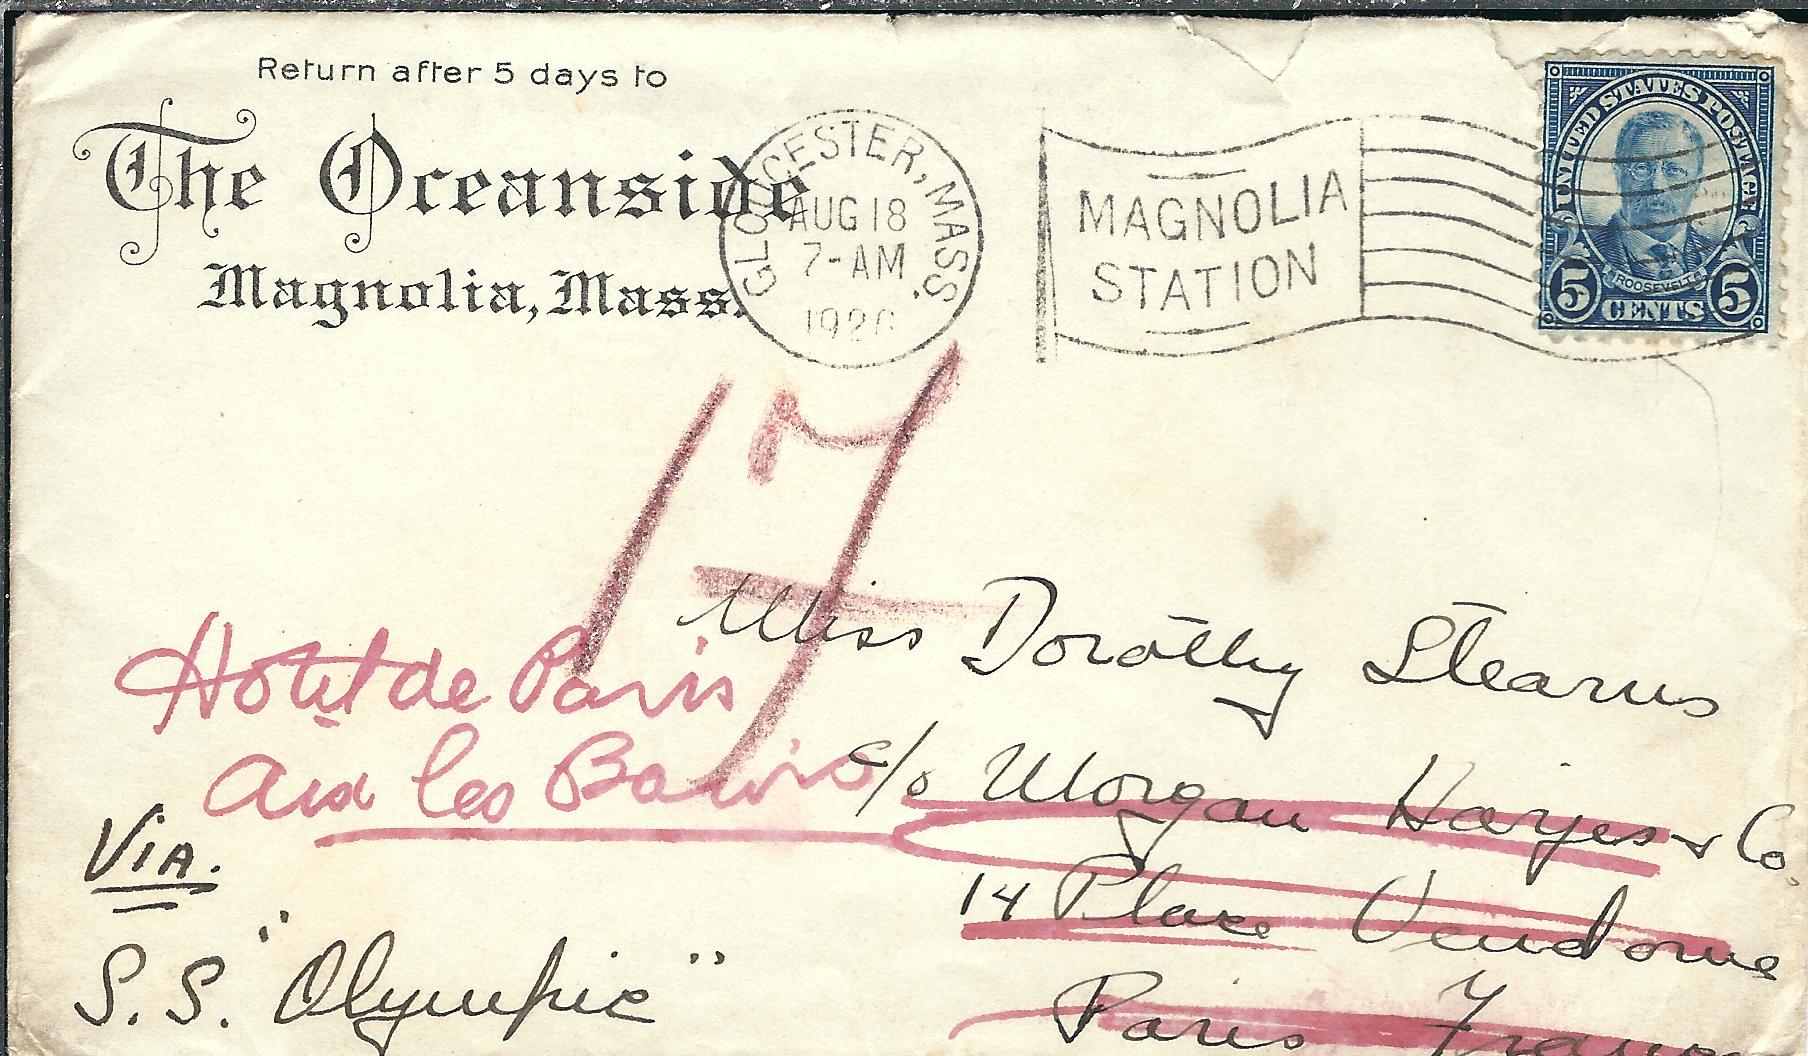 Return after 5 days to
The Oceanside
Magnolia, Mass.
GLOUCESTER, MASS.
AUG 18
7-AM
192
MAGNOLIA
STATION
UNITED STATES POSTAGE
ROOSEVELT
5 CENTS 5
17
Miss Dorothy Stearns
c/o Morgan Harjes & Co.
14 Place Vendome
Paris France
Hotel de Paris
Aix les Bains
VIA.
S.S. "Olympic"